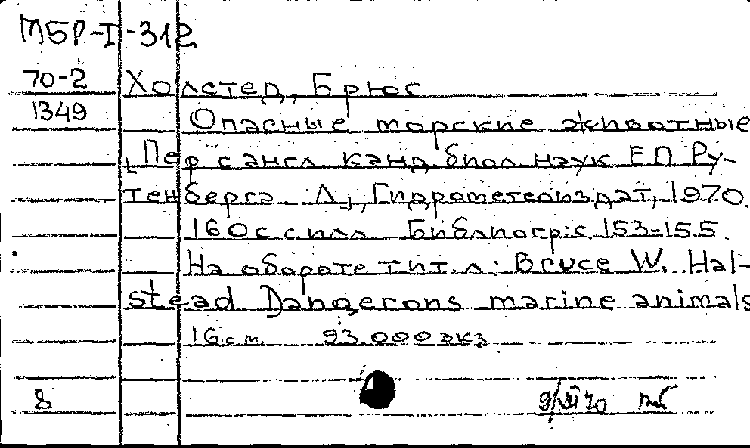 МБР-I-312
70-2 Холстед, Брюс
1349 Опасные морские животные
[Пер с англ канд биол наук Е П Ру-
тенберга Л, Гидрометеоиздат, 1970.
160 с с илл Библиогр: с 153-155.
На обороте тит. л: Bruce W. Hal-
stead Dangerous marine animals
16 см 93.000 экз
8